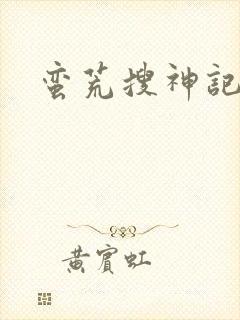 蛮荒搜神記
黄賓虹